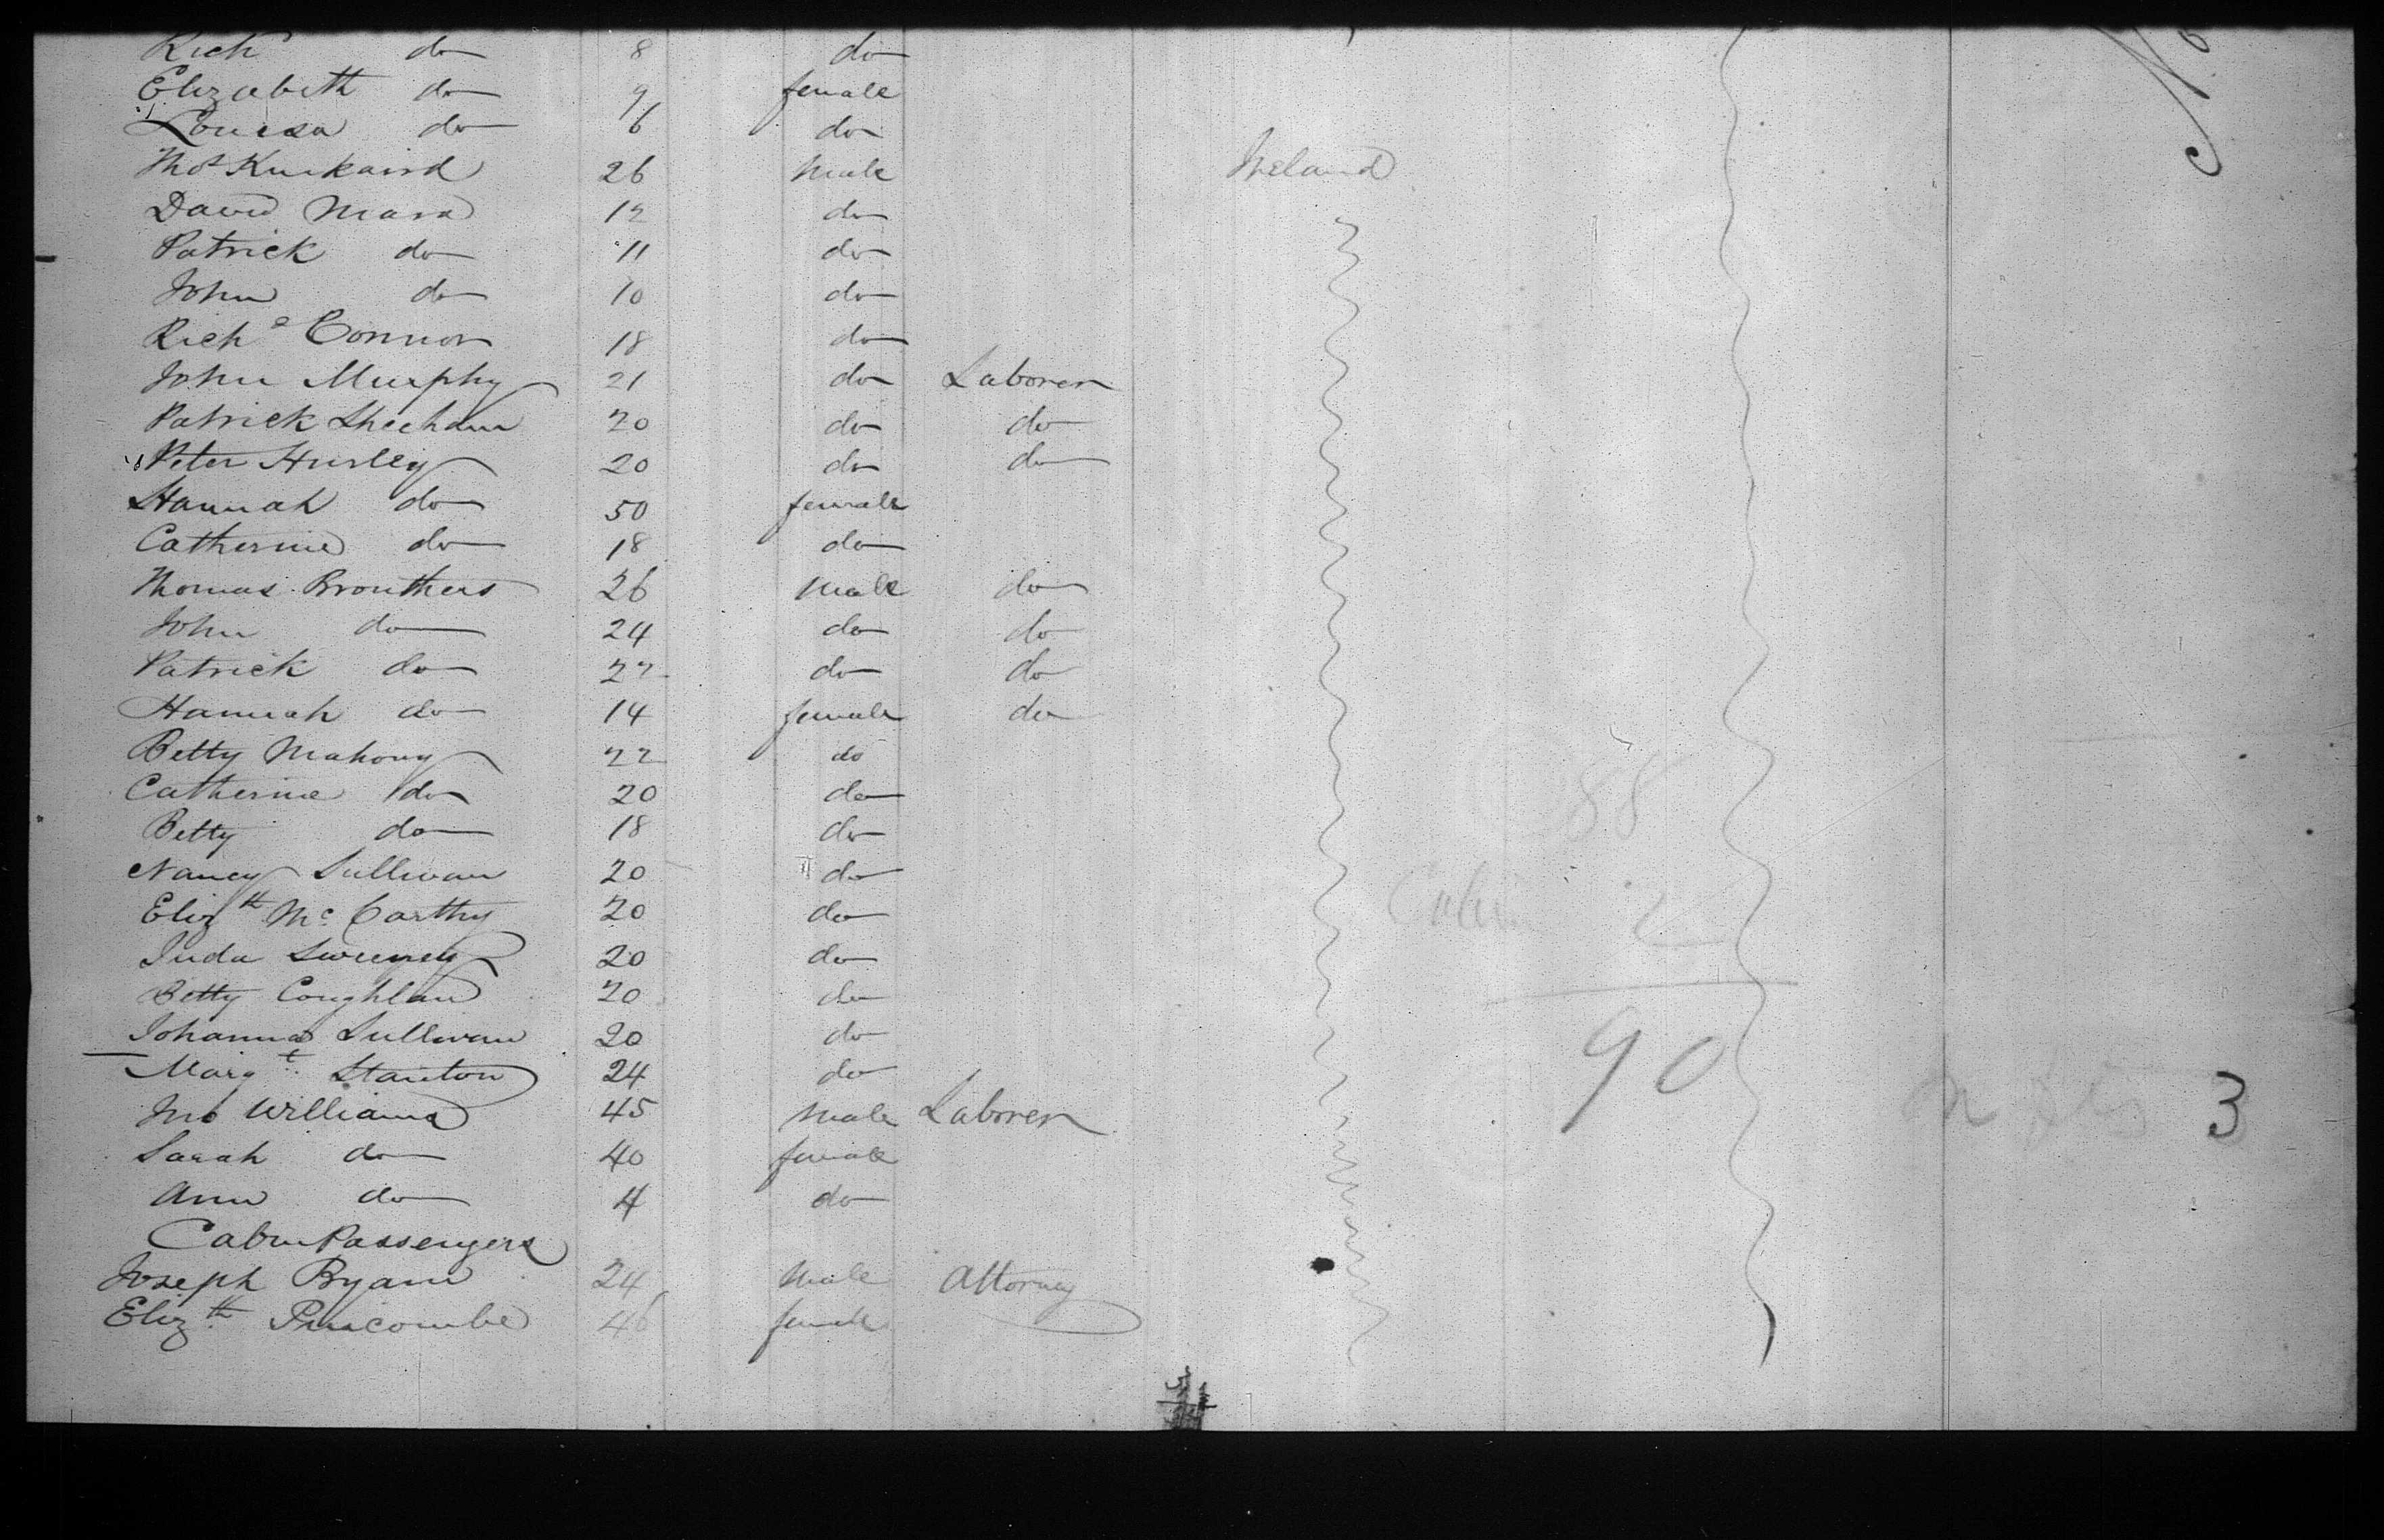 Rich do 8 do
Elizabeth do 9 female
Louisa do 6 do
Thos Kinkaird 26 Male Ireland
David Mara 12 do
Patrick do 11 do
John do 10 do
Richd Connor 18 do
John Murphy 21 do Laborer
Patrick Sheehan 20 do do
Peter Hurley 20 do do
Hannah do 50 female
Catherine do 18 do
Thomas Brouthers 26 Male do
John do 24 do do
Patrick do 22 do do
Hannah do 14 female do
Betty Mahony 22 do
Catherine do 20 do
Betty do 18 do
88
Nancy Sullivan 20 do
Elizth McCarthy 20 do Cabin 2
Juda Sweeney 20 do
Betty Coughlan 20 do
Johanna Sullivan 20 do
90
Margt Stanton 24 do
Jno Williams 45 Male Laborer 3
Sarah do 40 female
Ann do 4 do
Cabin Passengers
Joseph Byam 24 Male Attorney
Elizth 46 female